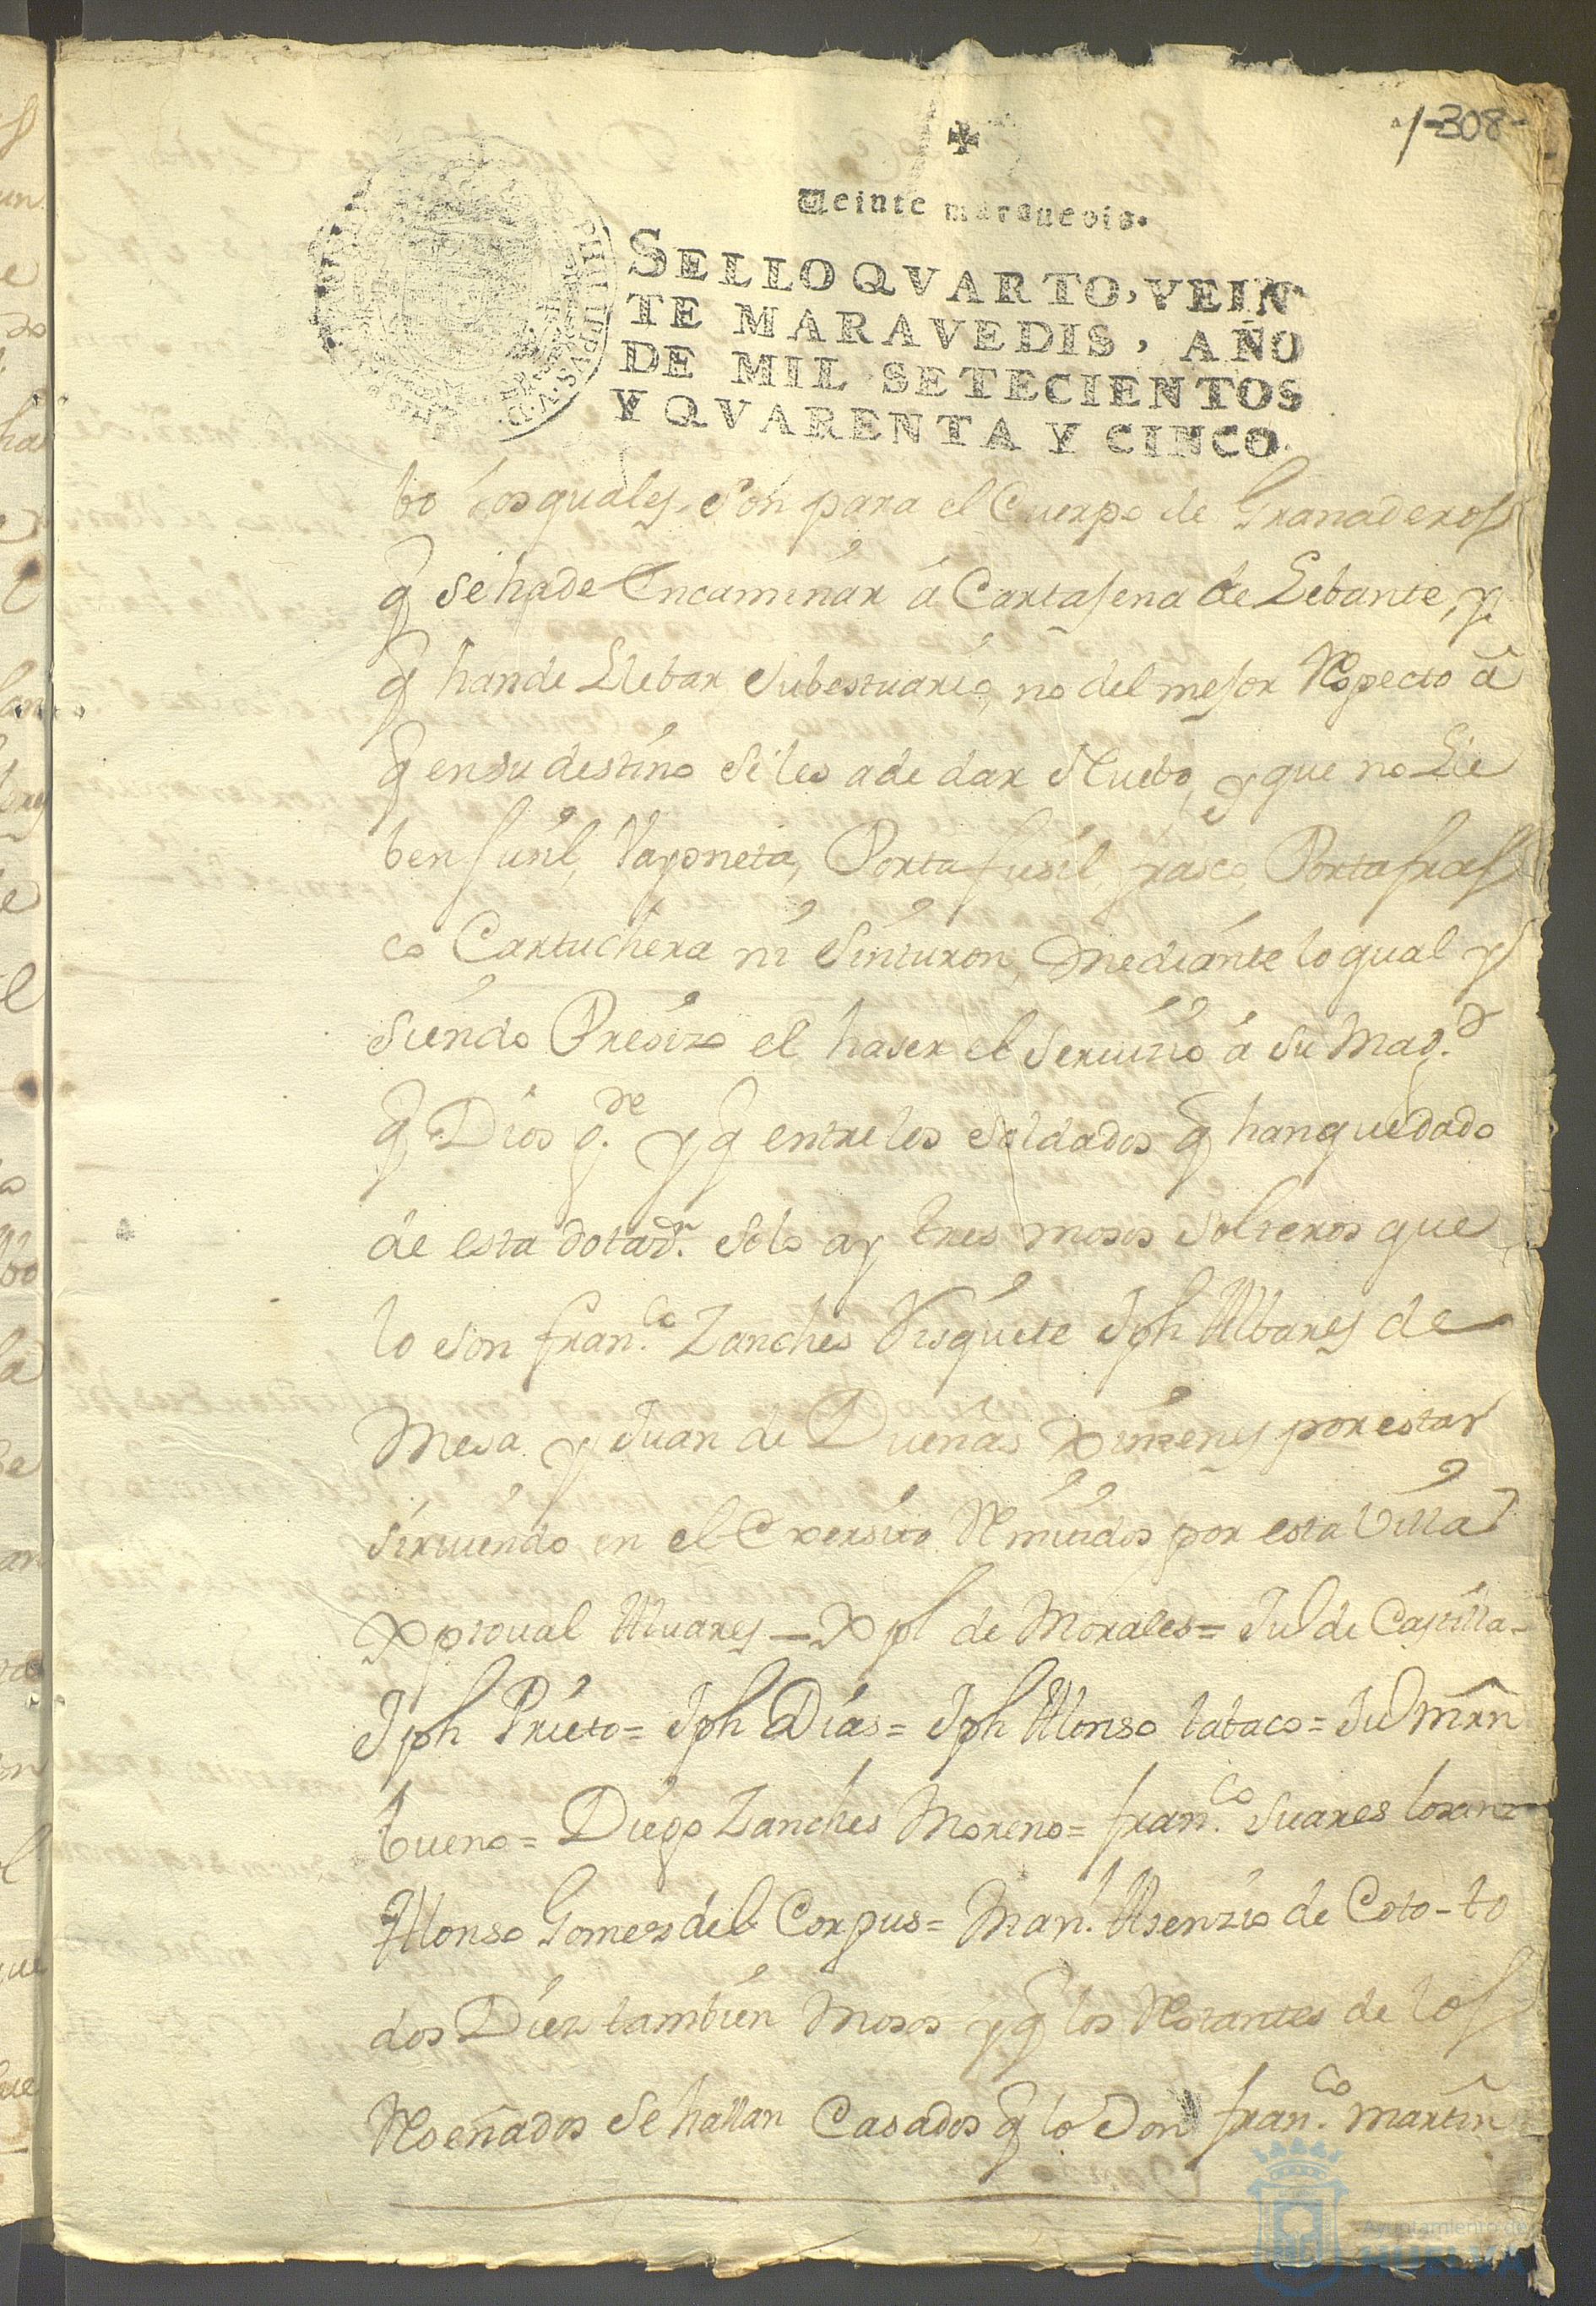 1-308-
Veinte maravedis.
SELLO QVARTO, VEIN
TE MARAVEDIS, AÑO
DE MIL SETECIENTOS
Y QVARENTA Y CINCO.
PHILIPPVS V D
bo los quales son para el Cuerpo de Granaderos
q se hade Encaminar á Cartajena de Lebante, y
q hande Llebar subestuario, no del mejor Respecto á
q ensu destino se les a de dar Nuebo, y que no Lle
ben fusil, Vayoneta, Portafusil, frasco, Portafras
co Cartuchera ni Sinturon, Mediante lo qual y
siendo Presizo el haser el Seruizio á Su Mag.d
q Dios g.de y q entre los soldados q han quedado
de esta dotaz.n solo ay tres mosos solteros que
lo son fran.co Zanches Visquete Jph Albares de
Mesa y Juan de Dueñas Ximenes por estar
siruiendo en el Exersito Remitidos por esta Villa
Xptoual Aluares - Xpl de Morales = Ju de Castilla -
Jph Prieto = Jph Dias = Jph Alonso tabaco = Ju mrn
bueno = Diego Zanches Moreno = fran.co Suares
Alonso Gomez del Corpus = Man.l Asenzio de Coto - to
dos Diez tambien Mosos y q los Restantes de los
Reseñados se hallan Casados q lo son fran.co martin
Ayuntamiento de
HUELVA